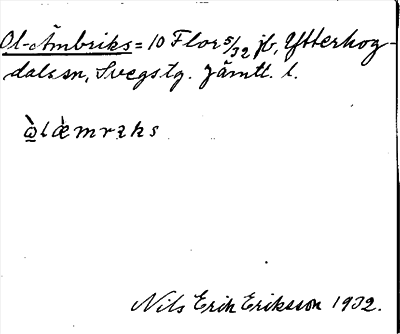 Ol-Ämbriks = 10 Flor 5/32 jb, Ytterhog-
dals sn, Svegs tg. Jämtl. l.
ò̲læ̀mrɪks
Nils Erik Eriksson 1932.